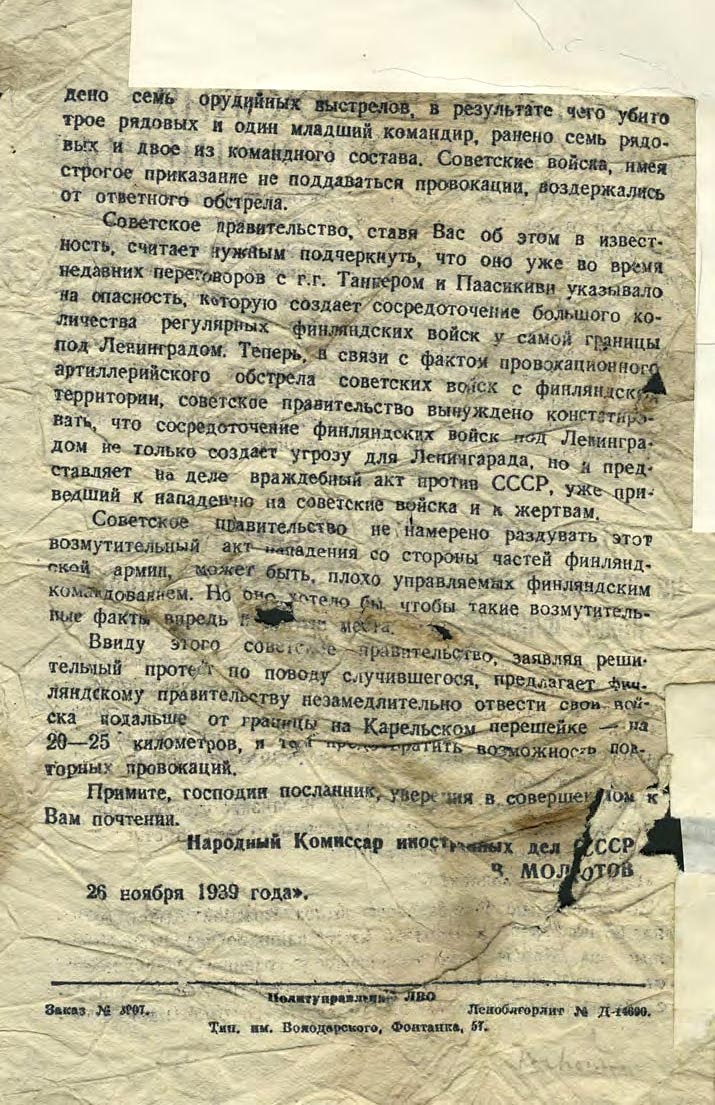 дено семь орудийных выстрелов, в результате чего убито
трое рядовых и один младший командир, ранено семь рядо-
вых и двое из командного состава. Советские войска, имея
строгое приказание не поддаваться провокации, воздержались
от ответного обстрела.
Советское правительство, ставя Вас об этом в извест-
ность, считает нужным подчеркнуть, что оно уже во время
недавних переговоров с г.г. Таннером и Паасикиви указывало
на опасность, которую создает сосредоточение большого ко-
личества регулярных финляндских войск у самой границы
под Ленинградом. Теперь, в связи с фактом провокационного
артиллерийского обстрела советских войск с финляндской
территории, советское правительство вынуждено констатиро-
вать, что сосредоточение финляндских войск под Ленингра-
дом не только создает угрозу для Ленингарада, но и пред-
ставляет на деле враждебный акт против СССР, уже при-
ведший к нападению на советские войска и к жертвам.
Советское правительство не намерено раздувать этот
возмутительный акт нападения со стороны частей финлянд-
ской армии, может быть, плохо управляемых финляндским
командованием. Но оно хотело бы, чтобы такие возмутитель-
ные факты впредь места.
Ввиду этого советское правительство, заявляя реши-
тельный протест по поводу случившегося, предлагает фин-
ляндскому правительству незамедлительно отвести свои вой-
ска подальше от границы на Карельском перешейке — на
20—25 километров, и тем предотвратить возможность пов-
торных провокаций.
Примите, господин посланник, уверения в совершенном к
Вам почтении.
Народный Комиссар иностранных дел СССР
В. МОЛОТОВ
26 ноября 1939 года».
Политуправление ЛВО
Заказ № Леноблгорлит № Д-14600.
Тип. им. Володарского, Фонтанка, 57.